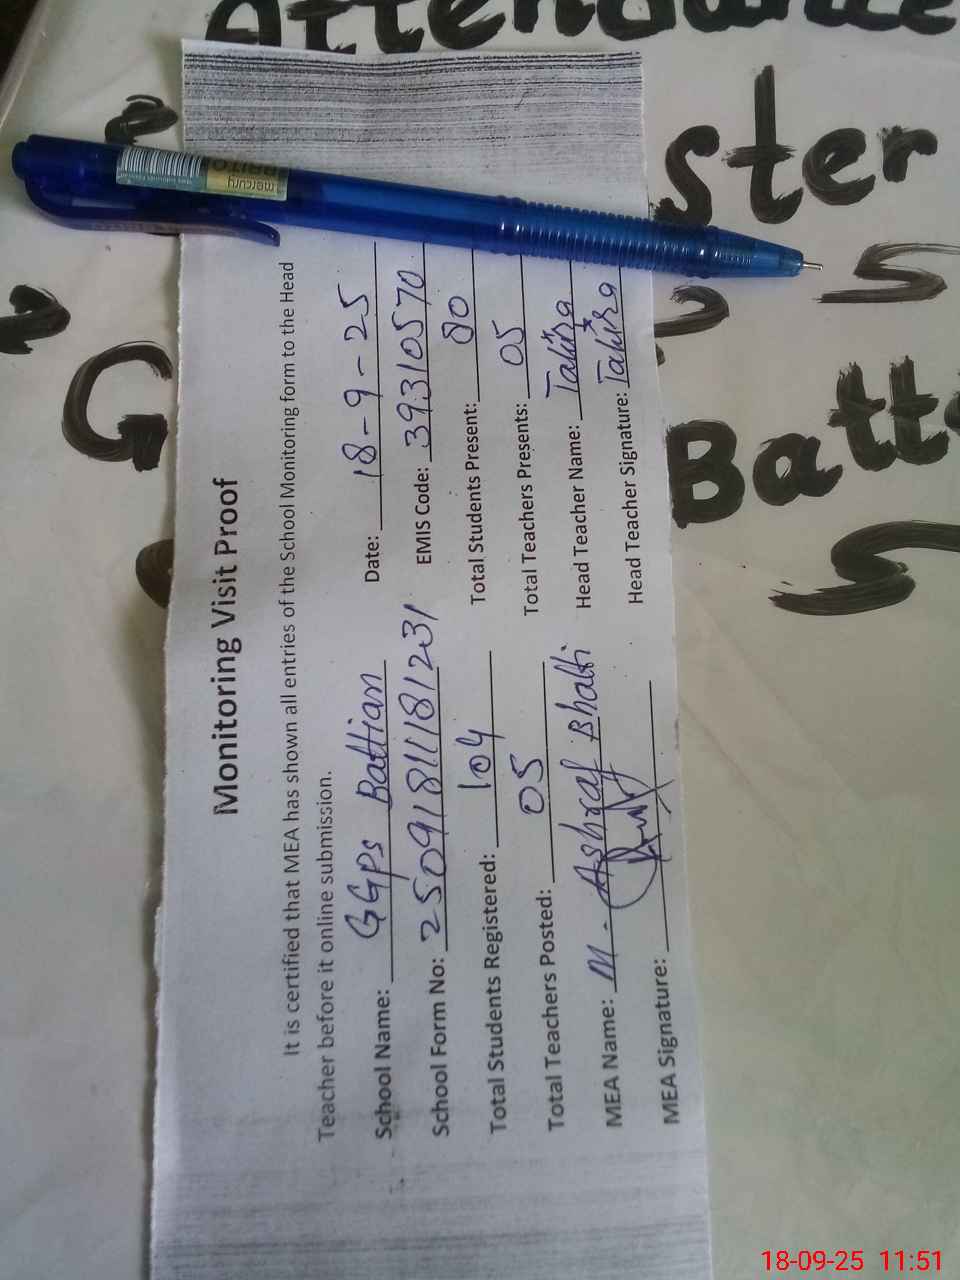 Attendance
ster
G
S
Batt
Monitoring Visit Proof
It is certified that MEA has shown all entries of the School Monitoring form to the Head
Teacher before it online submission.
School Name: GGPS Battian Date: 18-9-25
School Form No: 250918111181231 EMIS Code: 39310570
Total Students Registered: 104 Total Students Present: 80
Total Teachers Posted: 05 Total Teachers Presents: 05
MEA Name: M. Ashraf Bhatti Head Teacher Name: Tahira
MEA Signature: Head Teacher Signature: Tahira
mercury
18-09-25 11:51